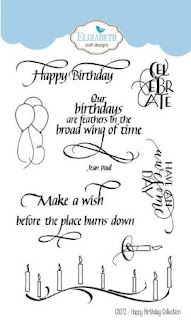 ELIZABETH
craft designs
Happy Birthday
CEL
EBR
ATE
Our
birthdays
are feathers in the
broad wing of time
Jean Paul
HAVE A
DAY
Make a wish
before the place burns down
CS072 - Happy Birthday Collection